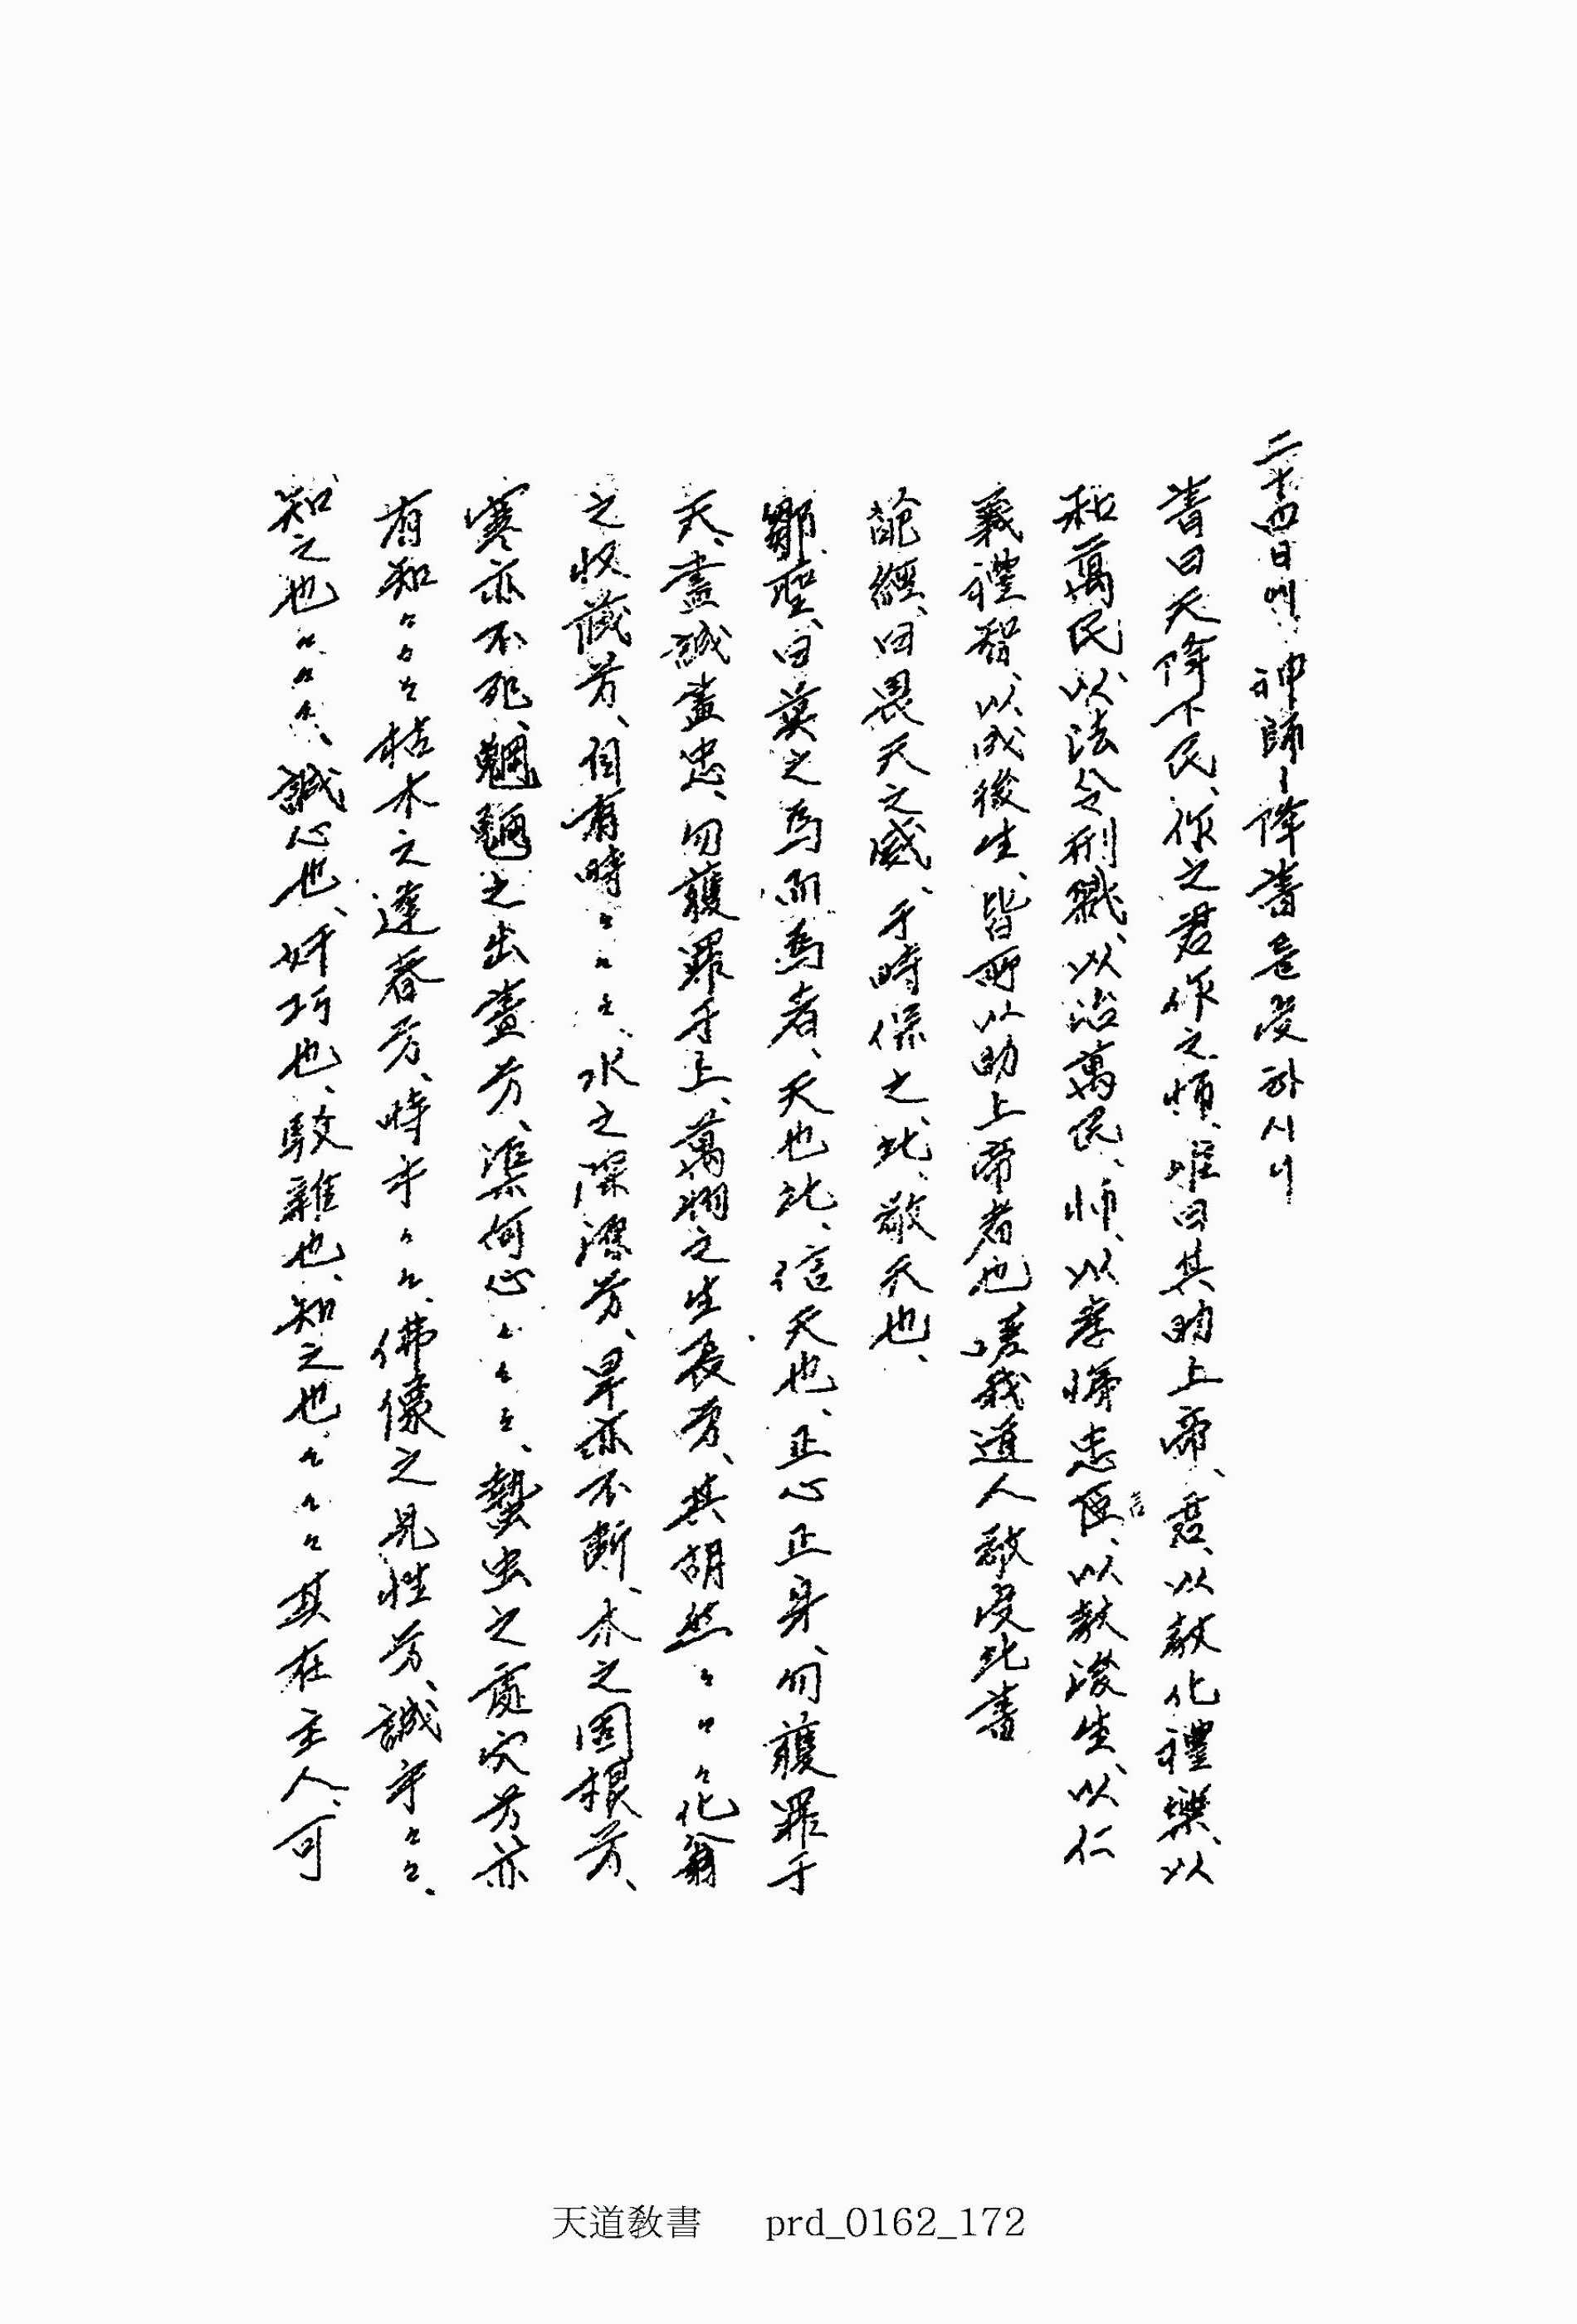 二十四日에 神師ㅣ降書를受하시니
書曰天降下民、作之君作之師、惟曰其助上帝、君、以敎化禮樂、以
和萬民、以法令刑戮、以治萬民、師、以孝悌忠信、以敎後生、以仁
義禮智、以成後生、皆所以助上帝者也、嗟我道人敬受此書
葩經、曰畏天之威、于時保之、此、敬天也、
鄒聖、曰莫之爲而爲者、天也此、信天也、正心正身、勿獲罪于
天、盡誠盡忠、勿獲罪于上、萬物之生長兮、其胡然々々々化翁
之收藏兮、自有時々々々、水之深源兮、旱亦不斷、木之固根兮、
寒亦不死、魍魎之出晝兮、渠何心々々々、蟄虫之處穴兮亦
有知々々々枯木之逢春兮、時乎々々、佛像之見性兮、誠乎々々、
知之也々々々、誠心也、奸巧也、駁雜也、知之也、々々々其在主人、可
天道敎書 prd_0162_172